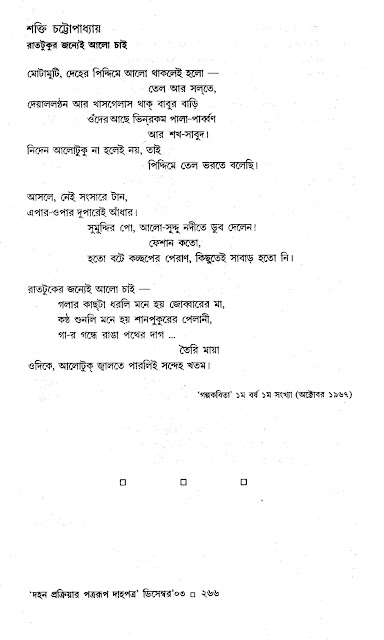 শক্তি চট্টোপাধ্যায়
রাতটুকুর জন্যেই আলো চাই
মোটামুটি, দেহের পিদ্দিমে আলো থাকলেই হলো —
তেল আর সল্‌তে,
দেয়াললণ্ঠন আর খাসগেলাস থাক্ বাবুর বাড়ি
ওঁদের আছে ভিন্‌রকম পালা-পার্ব্বণ
আর শখ-সাবুদ।
নিদেন আলোটুকু না হলেই নয়, তাই
পিদ্দিমে তেল ভরতে বলেছি।
আসলে, নেই সংসারে টান,
এপার-ওপার দুপারেই আঁধার।
সুমুদ্দির পো, আলো-সুদ্দু নদীতে ডুব দেলেন!
ফেশান কতো,
হতো বটে কচ্ছপের পেরাণ, কিছুতেই সাবাড় হতো নি।
রাতটুকের জন্যেই আলো চাই —
গলার কাছটা ধরলি মনে হয় জোব্বারের মা,
কণ্ঠ শুনলি মনে হয় শানপুকুরের পেলানী,
গা-র গন্ধে রাঙা পথের দাগ ...
তৈরি মায়া
ওদিকে, আলোটুক্ জ্বালতে পারলিই সন্দেহ খতম।
'গল্পকবিতা' ১ম বর্ষ ১ম সংখ্যা (অক্টোবর ১৯৬৭)
'দহন প্রক্রিয়ার পত্ররূপ দাহপত্র' ডিসেম্বর'০৩ □ ২৬৬